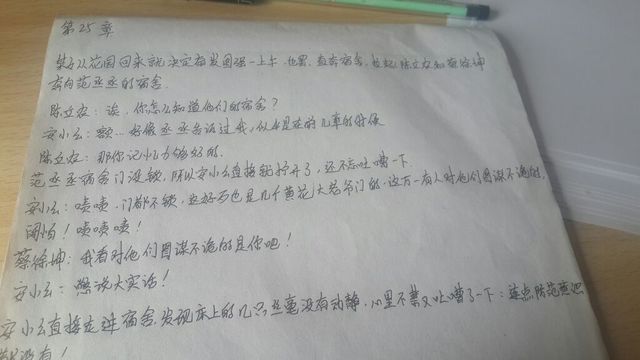 第25章
从花园回来就决定奋发图强一上午,直奔宿舍,拉起陈立农和蔡徐坤
去向范丞丞的宿舍.
陈立农:诶,你怎么知道他们的宿舍?
安小幺:额…好像丞丞告诉过我,似乎是在前几章的时候
陈立农:那你记忆力够好的.
范丞丞宿舍门没锁,所以安小幺直接就拧开了,还不忘吐嘈一下
安小幺:啧啧,门都不锁,好歹也是几个黄花大爷们的,这万一有人对他们图谋不诡的
闯怕!啧啧啧!
蔡徐坤:我看对他们图谋不诡的是你吧!
安小幺:瞎说大实话!
安小幺直接走进宿舍,发现床上的几只丝毫没有动静,心里不禁又吐嘈了一下:连点防范意识
都没有!